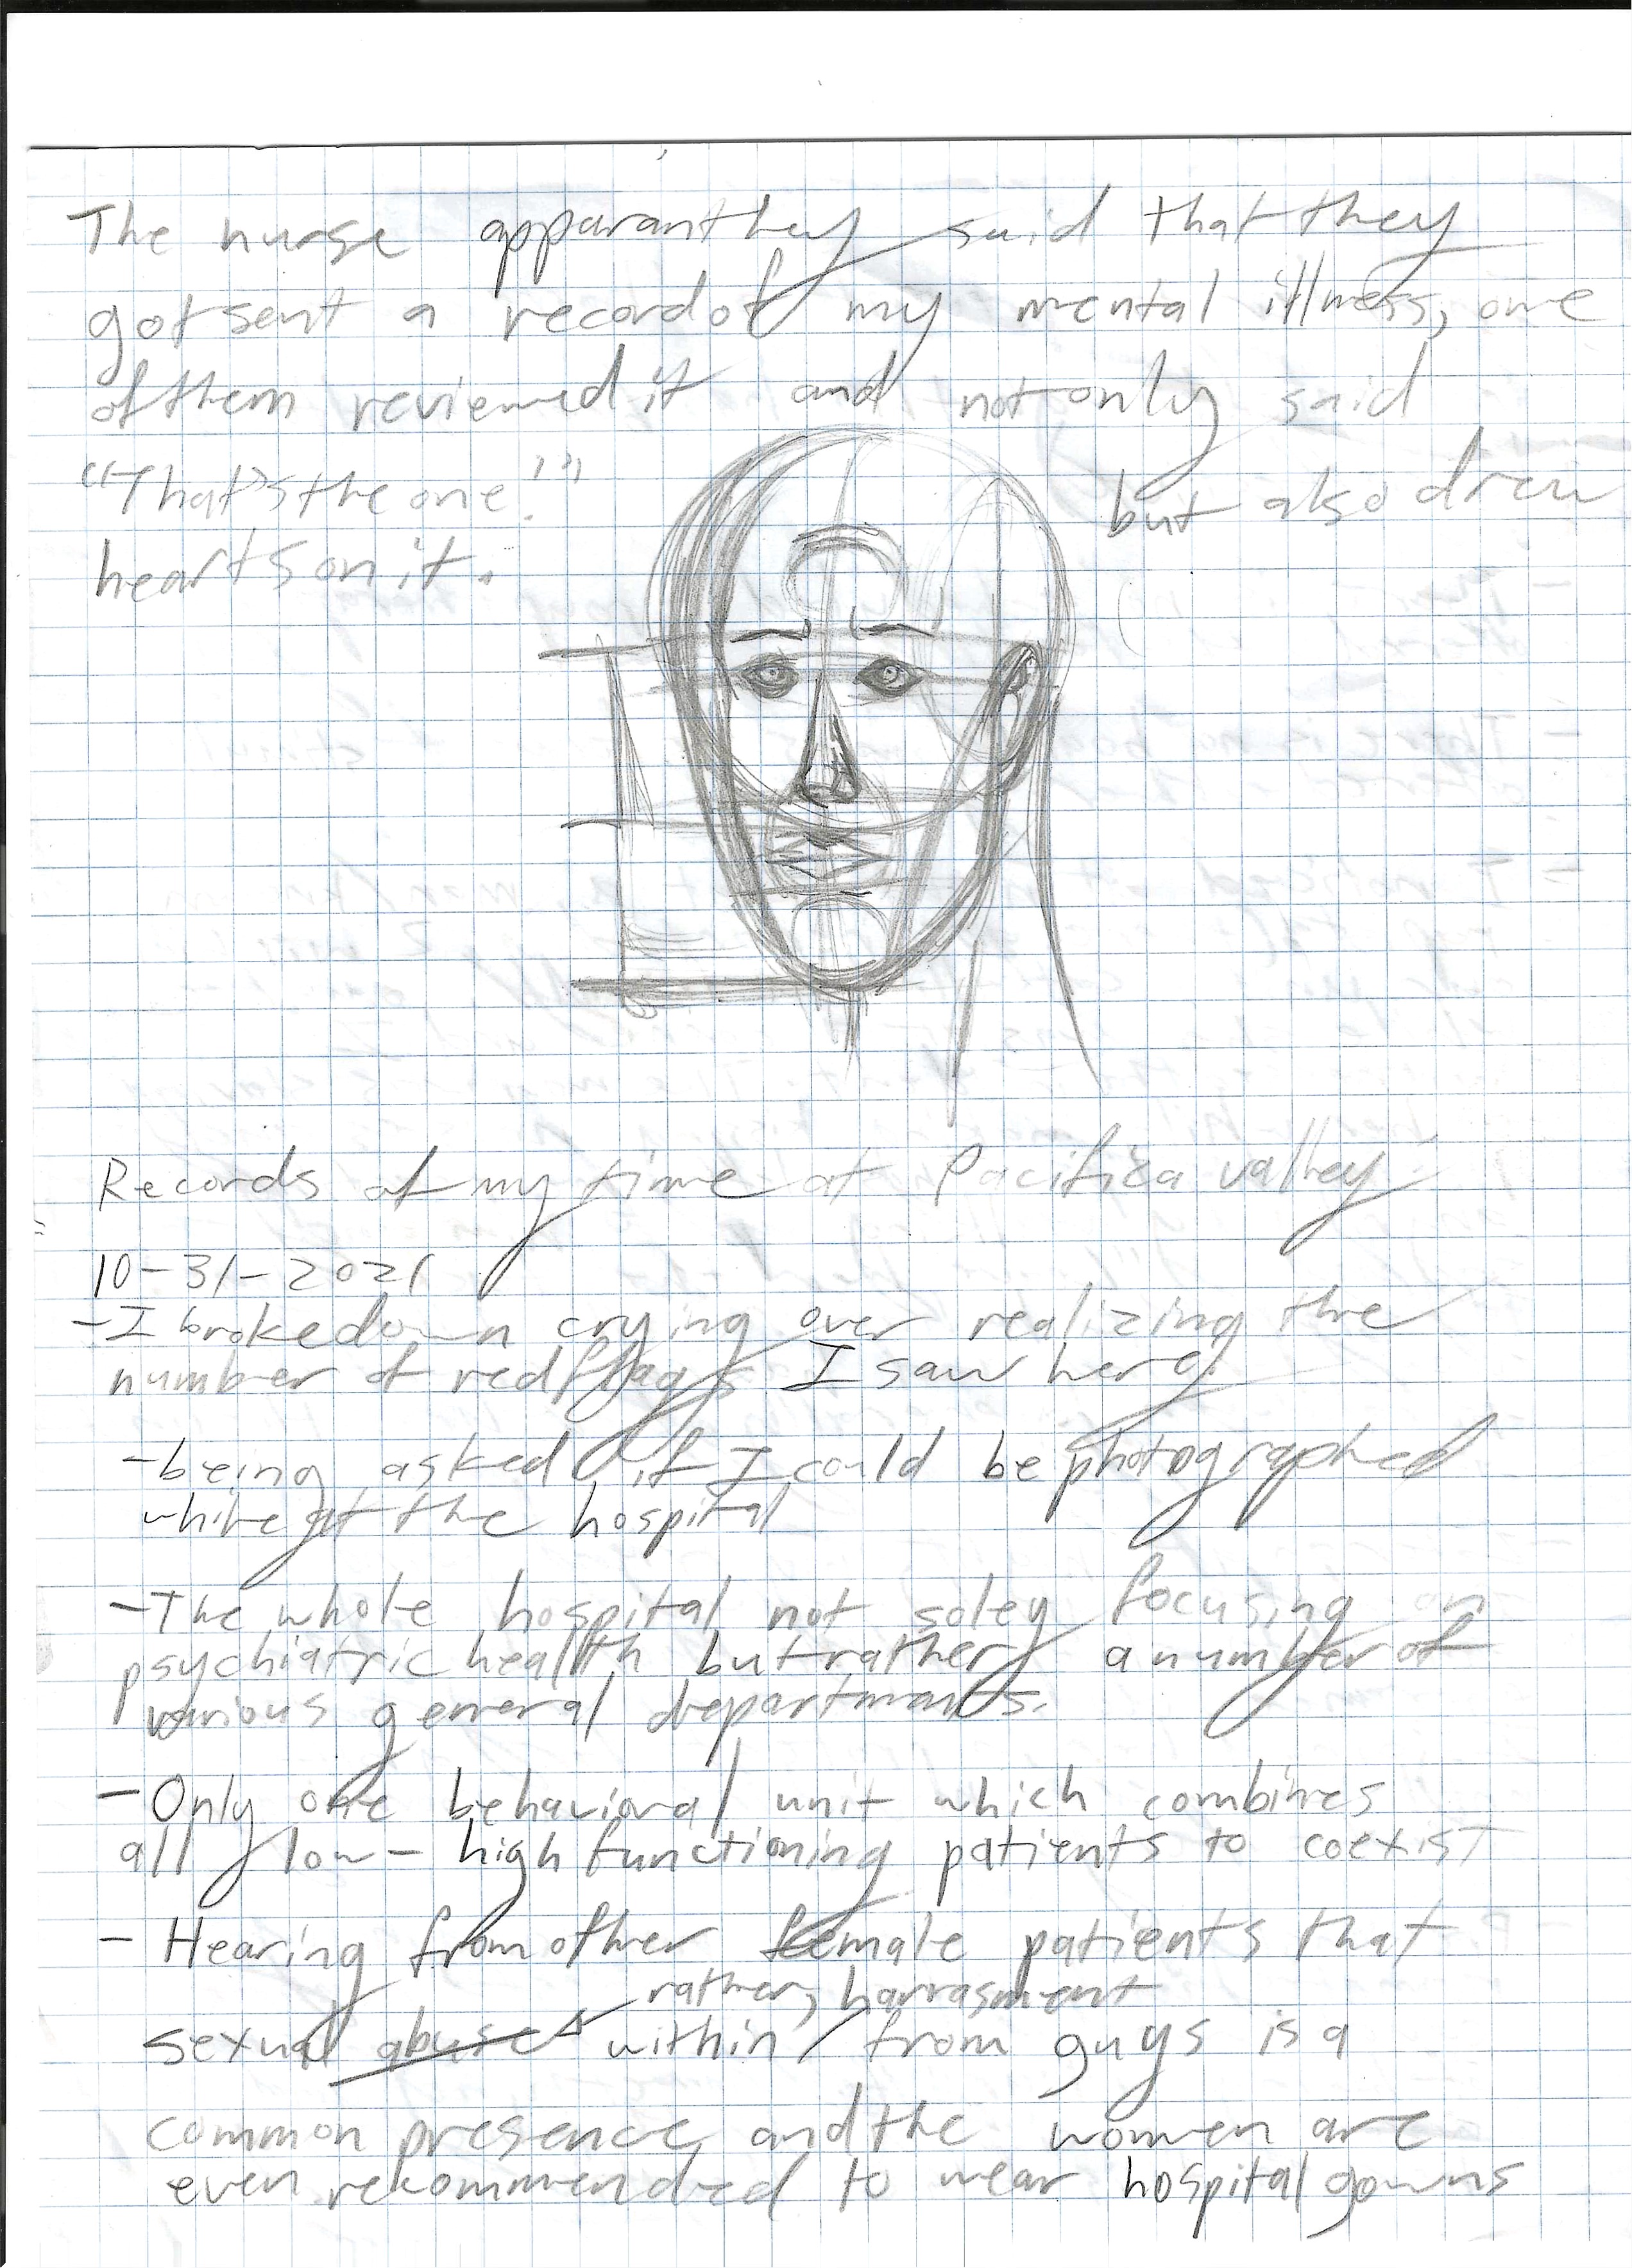 The nurse apparantley said that they
got sent a record of my mental illness, one
of them reviewed it and not only said
"That's the one!" but also drew
hearts on it.
Records of my time at Pacifica valley
10-31-2021
- I broke down crying over realizing the
number of red flags I saw here.
- being asked if I could be photographed
while at the hospital
- The whole hospital not soley focusing on
psychiatric health but rather a number of
various general departments.
- Only one behavioral unit which combines
all low - high functioning patients to coexist
- Hearing from other female patients that
rather, harrasment
sexual abuse within / from guys is a
common presence and the women are
even rekommended to wear hospital gowns